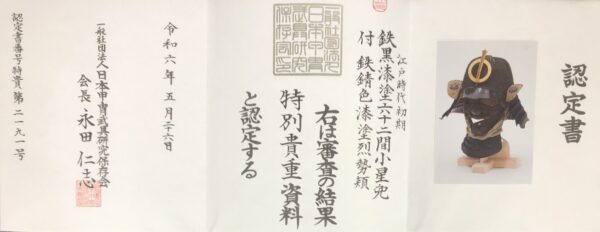 認定書
江戸時代初期
鉄黒漆塗六十二間小星兜
付 鉄錆色漆塗烈勢頬
右は審査の結果
特別貴重資料
と認定する
令和六年五月二十六日
一般社団法人日本甲冑武具研究保存会
会長 永田仁志
認定書番号特貴第二一九一号